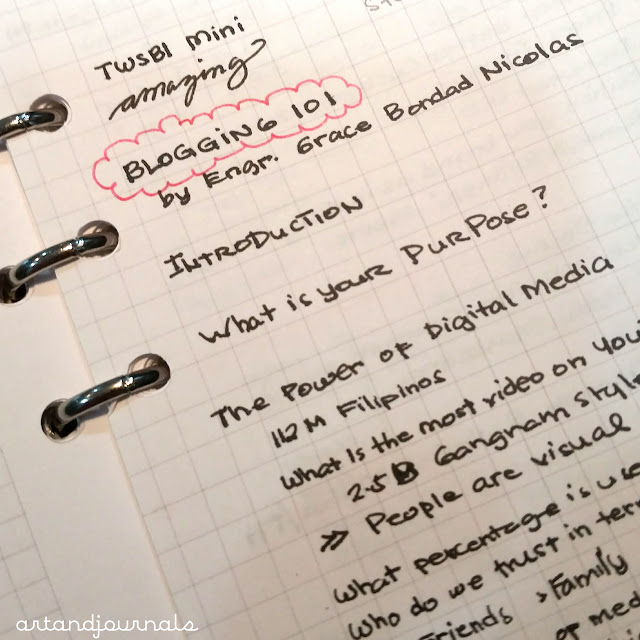 TWSBI mini
amazing
BLOGGING 101
by Engr. Grace Bondad Nicolas
INTRODUCTION
What is your PURPOSE?
The Power of Digital Media
112 M Filipinos
What Is the most video on You
2.5 B Gangnam Style
» People are visual
What percentage is use
Who do we trust in ter
Friends > Family
of med
artandjournals